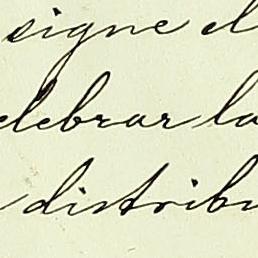 signe el
elebrar la
distribu